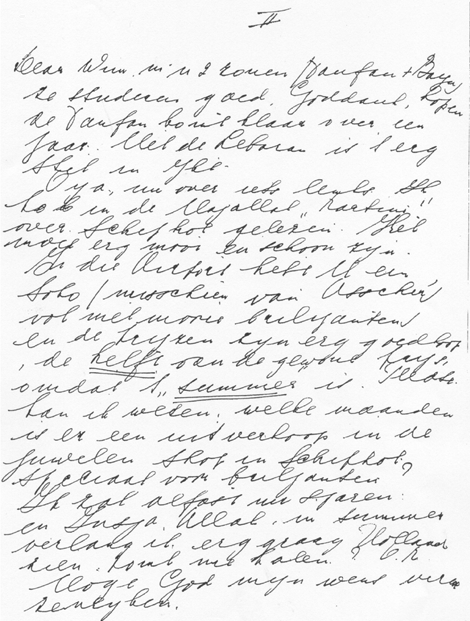 II
Dear Wim, m'n 2 zonen (Vanfan + Bayu)
ze studeren goed, Goddank, & lopen
de Vanfan komt klaar over een
jaar. Met de Lebaran is 't erg
stil in Jkt.
ya, nu over iets leuks. Ik
heb in de Majallah "Kartini"
over Schiphol gelezen. Het
moet erg mooi en schoon zijn.
In die Airport hebt U een
Toko (misschien van Asscher)
vol met mooie briljanten
en de prijzen zijn erg goedkoop
, de helft van de gewone prijs,
omdat 't "summer" is. Please
kan ik weten, welke maanden
is er een uitverkoop in de
juwelen shop in Schiphol,
speciaal voor briljanten
Ik zal alfast nu sparen.
en Insja Allah, in summer
verlang ik erg graag Holland
zien. Komt me halen.
Moge God mijn wens ver-
wezenlijken.